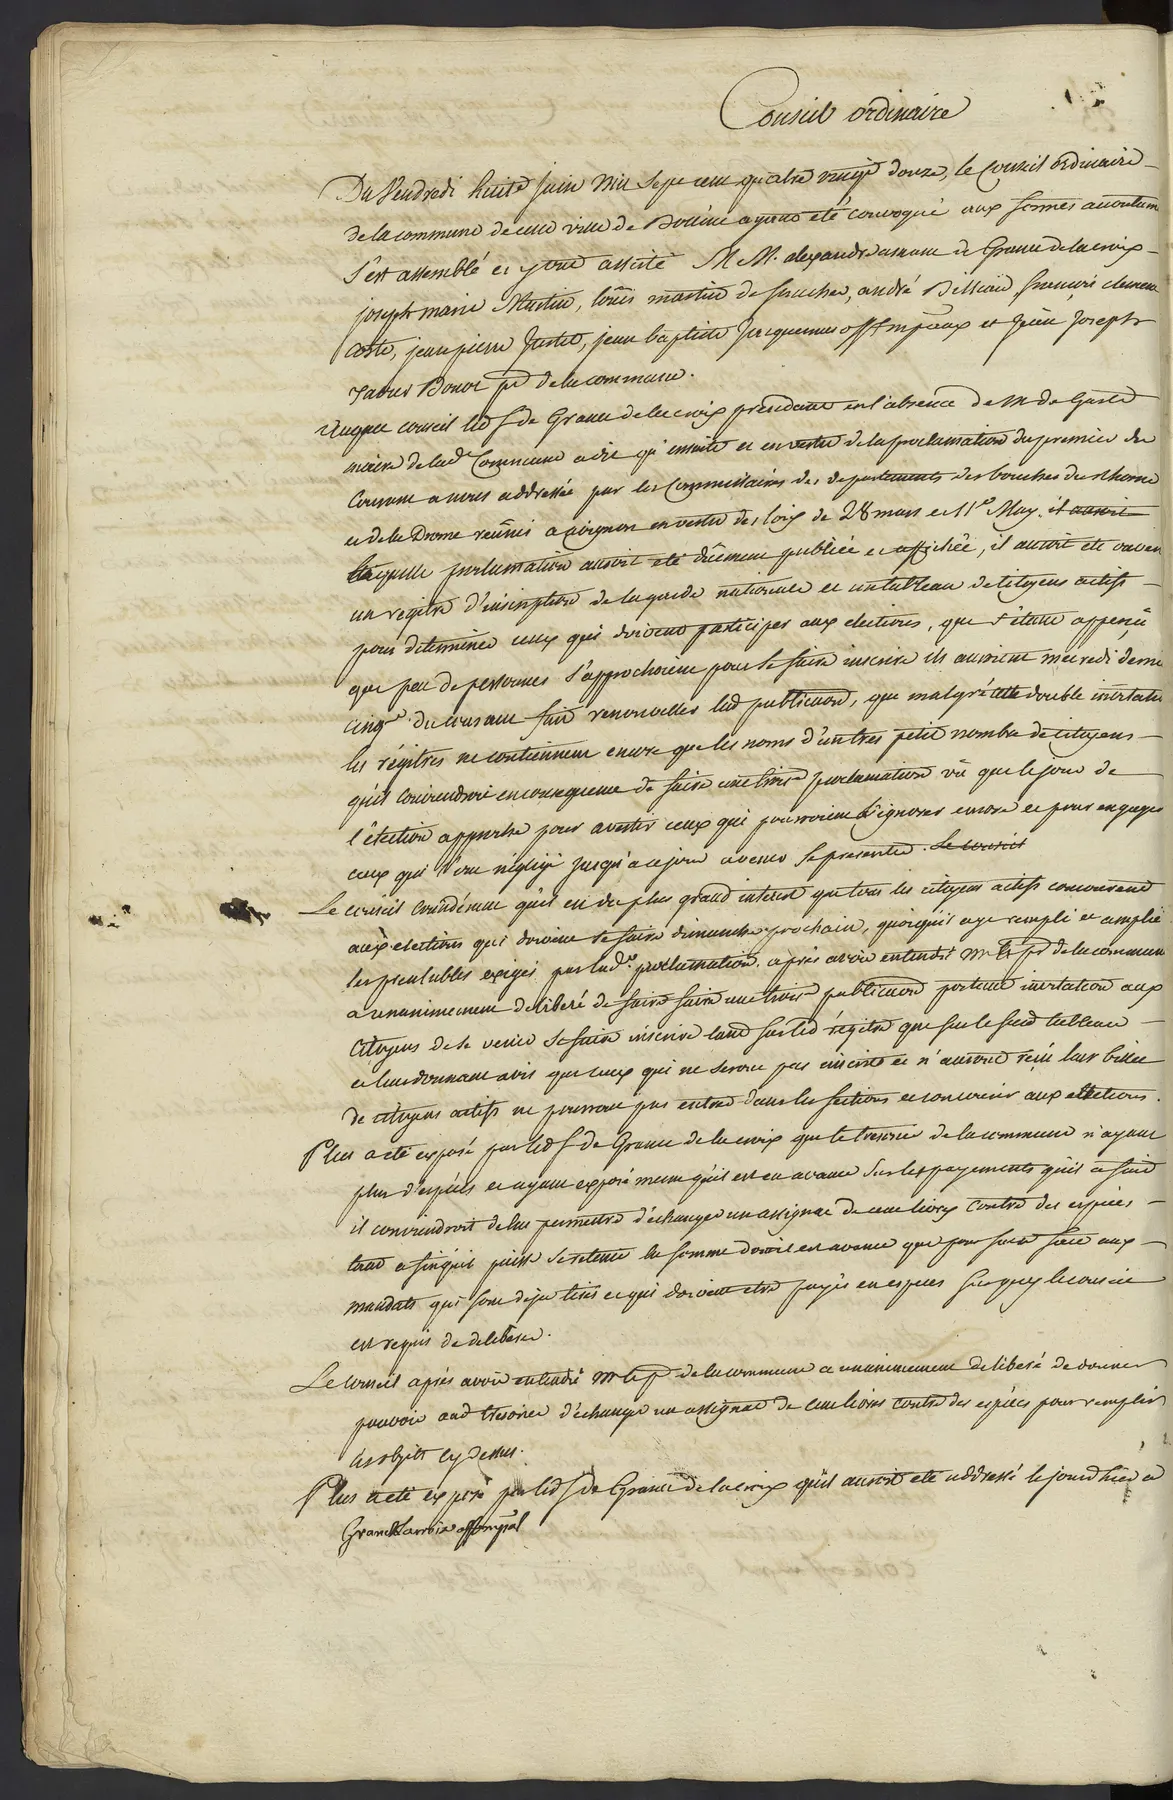 Conseil ordinaire
Du Vendredi huite Juin Mil Sept cent quatre vingt douze, le Conseil ordinaire
de la commune de cette ville de Bollène ayant été convoqué aux formes accoutum
S'est assemblé et y ont assisté M M. alexandre de Grane de la croix
joseph marie Martin, loüis martin de, andré Billiard, françois clement
coste, jean pierre, jean baptiste Jacquemus off mpaux et joseph
xavier Bonot pr de la commune.
Auquel conseil led Sr de Grane de la croix président en l'absence de M de Guste
maire de lade Commune a dit qu'ensuite et en vertu de la proclamation du premier du
Courant a nous addressée par les Commissaires des departements des bouches du rhone
et de la Drome reünis a avignon en vertu des loix de 28 mars et 11e May. il auroit
laquelle proclamation auroit eté düement publiée et affichée, il auroit eté ouvert
un registre d'inscription de la garde nationale et un tableau de Citoyens actifs
pour determiner ceux qui doivent participer aux elections, que s'étant apperçû
que peu de personnes s'approchoient pour se faire inscrire ils auroient mecredi dernie
cinqe du courant fait renouveller lad publication, que malgré cette double invitation
les régitres ne contiennent encore que les noms d'un tres petit nombre de citoyens
qu'il conviendroit en consequence de faire une proclamation vû que le jour de
l'élection approche pour avertir ceux qui pourroient l'ignorer encore et pour engager
ceux qui l'ont négligé jusqu'a ce jour a venir se presenter. Le conseil
Le conseil considérant qu'il est du plus grand interest que tous les citoyens actifs concourent
aux elections qui doivent se faire dimanche prochain, quoiqu'il aye rempli et amplié
les prealables exigés par lade proclamation. après avoir entendu M le pr de la commune
a unanimement deliberé de faire faire une publication portant invitation aux
Citoyens de se venir se faire inscrire tant sur led régitre que sur le susd tableau
et leur donnant avis que ceux qui ne seront pas inscrits et n'auront reçu leur billet
de citoyens actifs ne pourront pas entrer dans les sections et concourir aux elections.
Plus a eté exposé par led Sr de Grane de la croix que le tresorier de la commune n'ayant
plus d'espéces et ayant exposé meme qu'il est en avance sur les payements qu'il a fait
il conviendroit de lui permettre d'échanger un assignat de cent livres contre des espéces
tant a fin qu'il puisse se retenir la somme dont il est en avance que pour faire face aux
mandats qui sont déja tirés et qui doivent etre payés en especes sur quoy le conseil
est requis de deliberer.
Le conseil après avoir entendu M le pr de la commune a unanimement deliberé de donner
pouvoir aud tresorier d'échanger un assignat de cent livres contre des espéces pour remplir
les objets cy dessus.
Plus a eté exposé par led Sr de Grane de la croix qu'il auroit eté addressé le jour d'hier a
Grane Lacroix off mpal